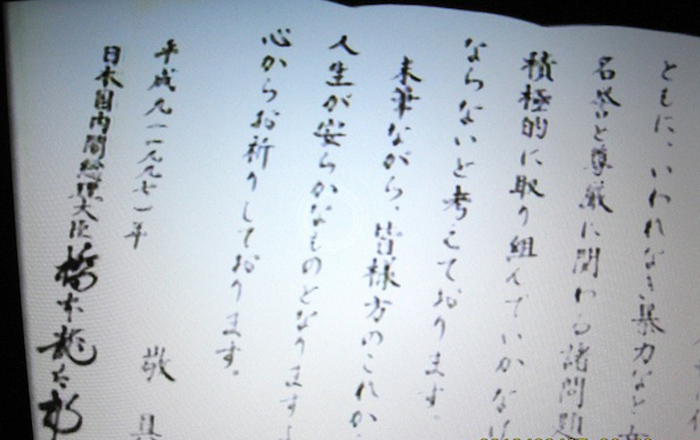 ともに、いわれなき暴力など
名誉と尊厳に関わる諸問題
積極的に取り組んでいかな
ならないと考えております。
末筆ながら、皆様方のこれか
人生が安らかなものとなります
心からお祈りしております。
敬具
平成九(一九九七)年
日本国内閣総理大臣 橋本龍太郎